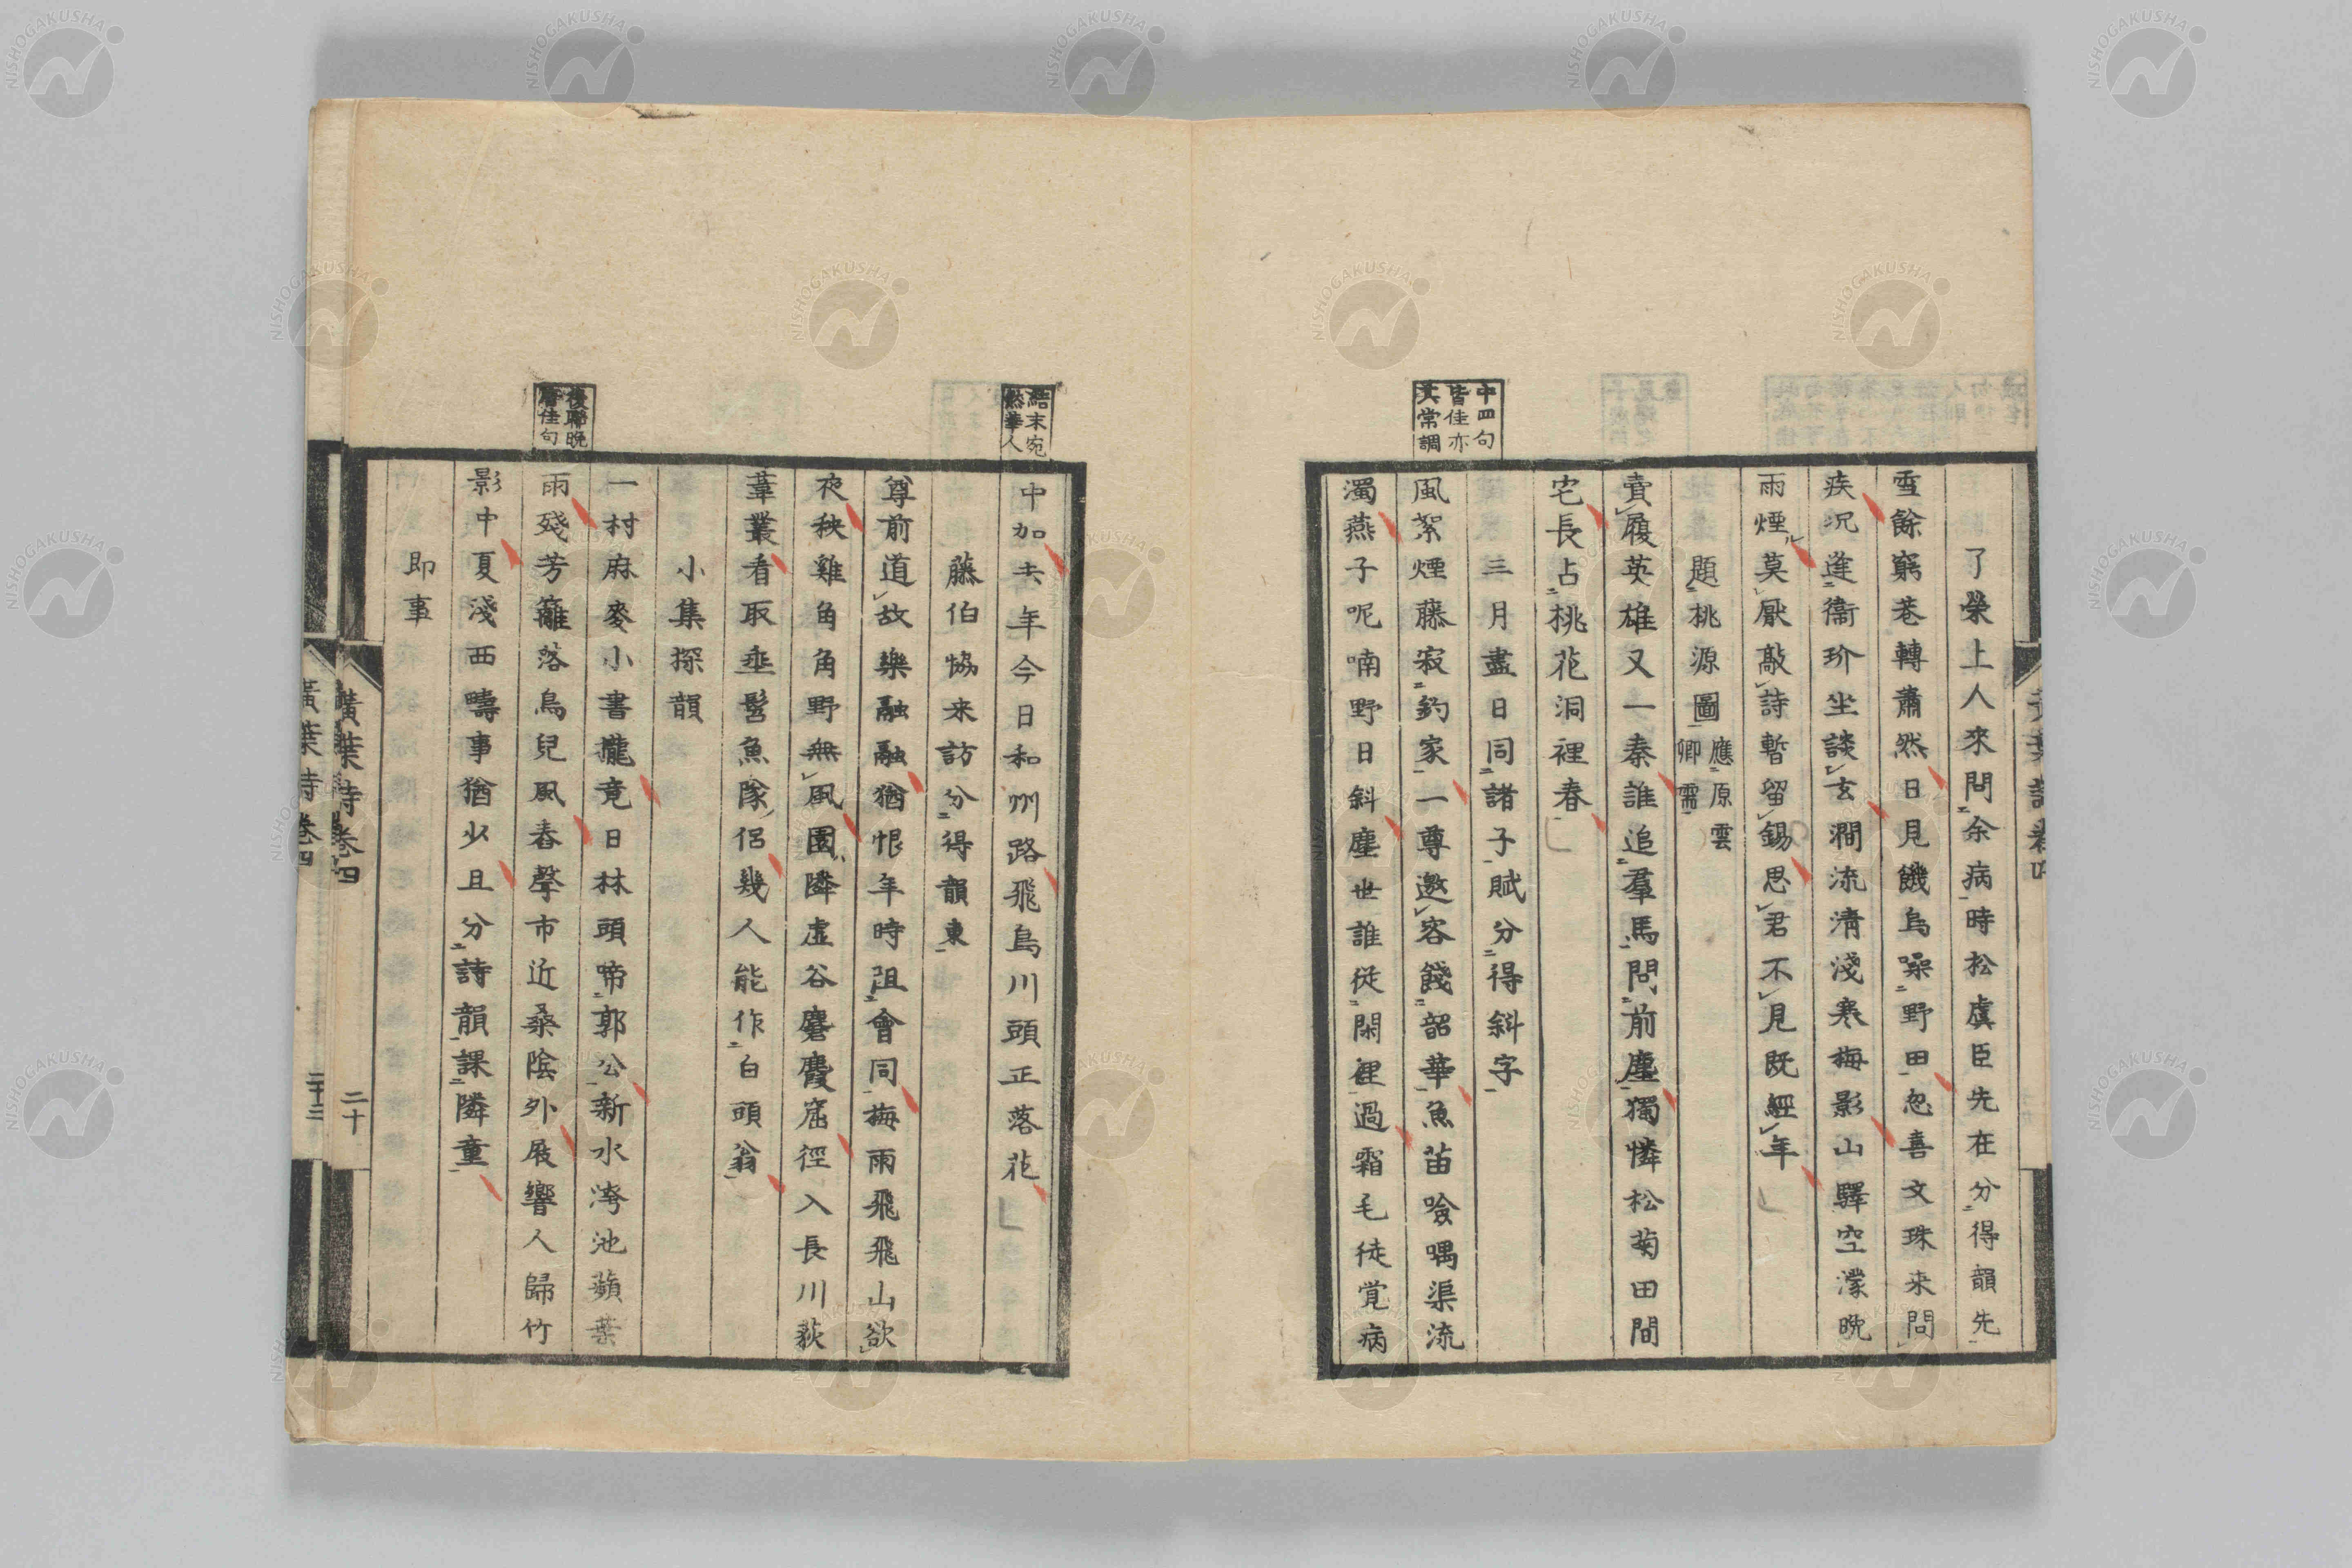 了榮上人來問余病時松虞臣先在分得韻先
雪餘窮巷轉蕭然日見饑烏噪野田忽喜文珠来問
疾況逢衞玠坐談玄澗流清淺寒梅影山驛空濛晩
雨煙莫厭敲詩暫留錫思君不見既經年
題桃源圖應原雲卿需
賣履英雄又一秦誰追羣馬問前塵獨憐松菊田間
宅長占桃花洞裡春
三月盡日同諸子賦分得斜字
中四句
皆佳亦
其常調
風絮煙藤寂釣家一尊邀客餞韶華魚苗噞喁渠流
濁燕子呢喃野日斜塵世誰徒閑裡過霜毛徒覚病
結末宛
然華人
中加去年今日和州路飛鳥川頭正落花
藤伯恊来訪分得韻東
尊前道故樂融融猶恨年時阻會同梅雨飛飛山欲
夜秧雞角角野無風園隣虚谷麏麚窟徑入長川荻
葦叢看取垂髫魚隊侶幾人能作白頭翁
小集探韻
一村麻麥小書櫳竟日林頭啼郭公新水濘池蘋葉
後聯晩
唐佳句
雨殘芳籬落鳥兒風舂聲市近桑陰外屐響人歸竹
影中夏淺西疇事猶少且分詩韻課隣童
即事
黄葉詩卷四 二十